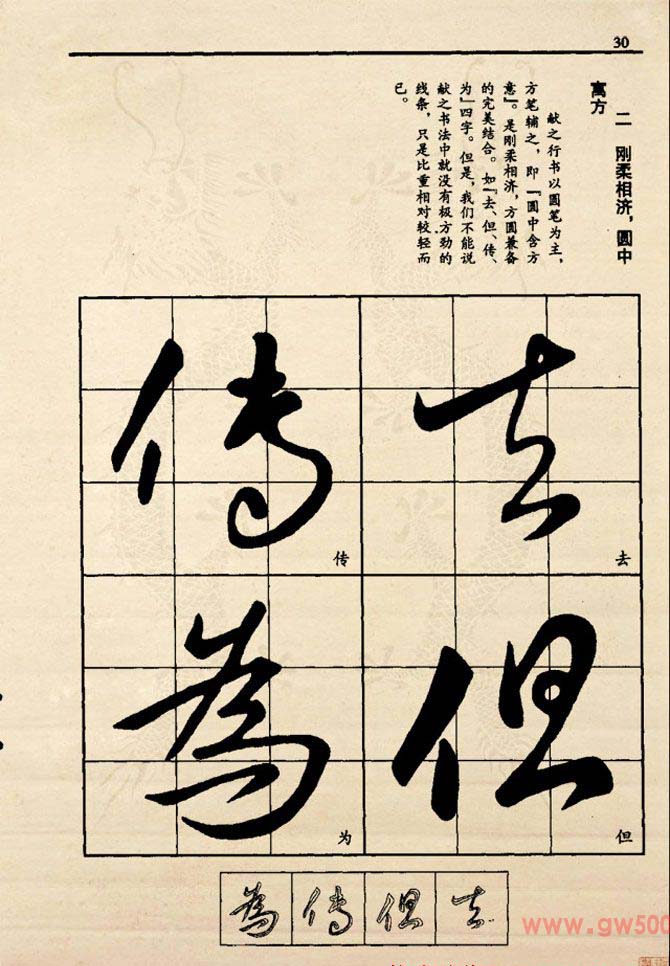 30
二 刚柔相济，圆中
寓方
献之行书以圆笔为主，
方笔辅之，即『圆中含方
意』。是刚柔相济，方圆兼备
的完美结合。如『去、但、传、
为』四字。但是，我们不能说
献之书法中就没有极方劲的
线条，只是比重相对较轻而
已。
去
去
但
但
傳
传
為
为
去但傳為
www.gw500